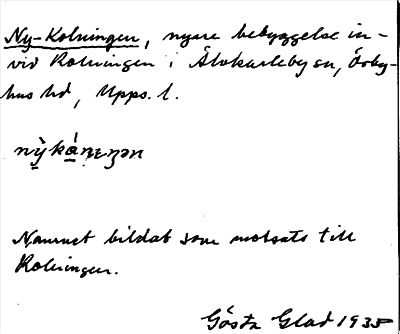 Ny-Kolningen, nyare bebyggelse in-
vid Kolningen i Älvkarleby sn, Örby-
hus hd, Upps. l.
Namnet bildat som motsats till
Kolningen.
Gösta Glad 1935